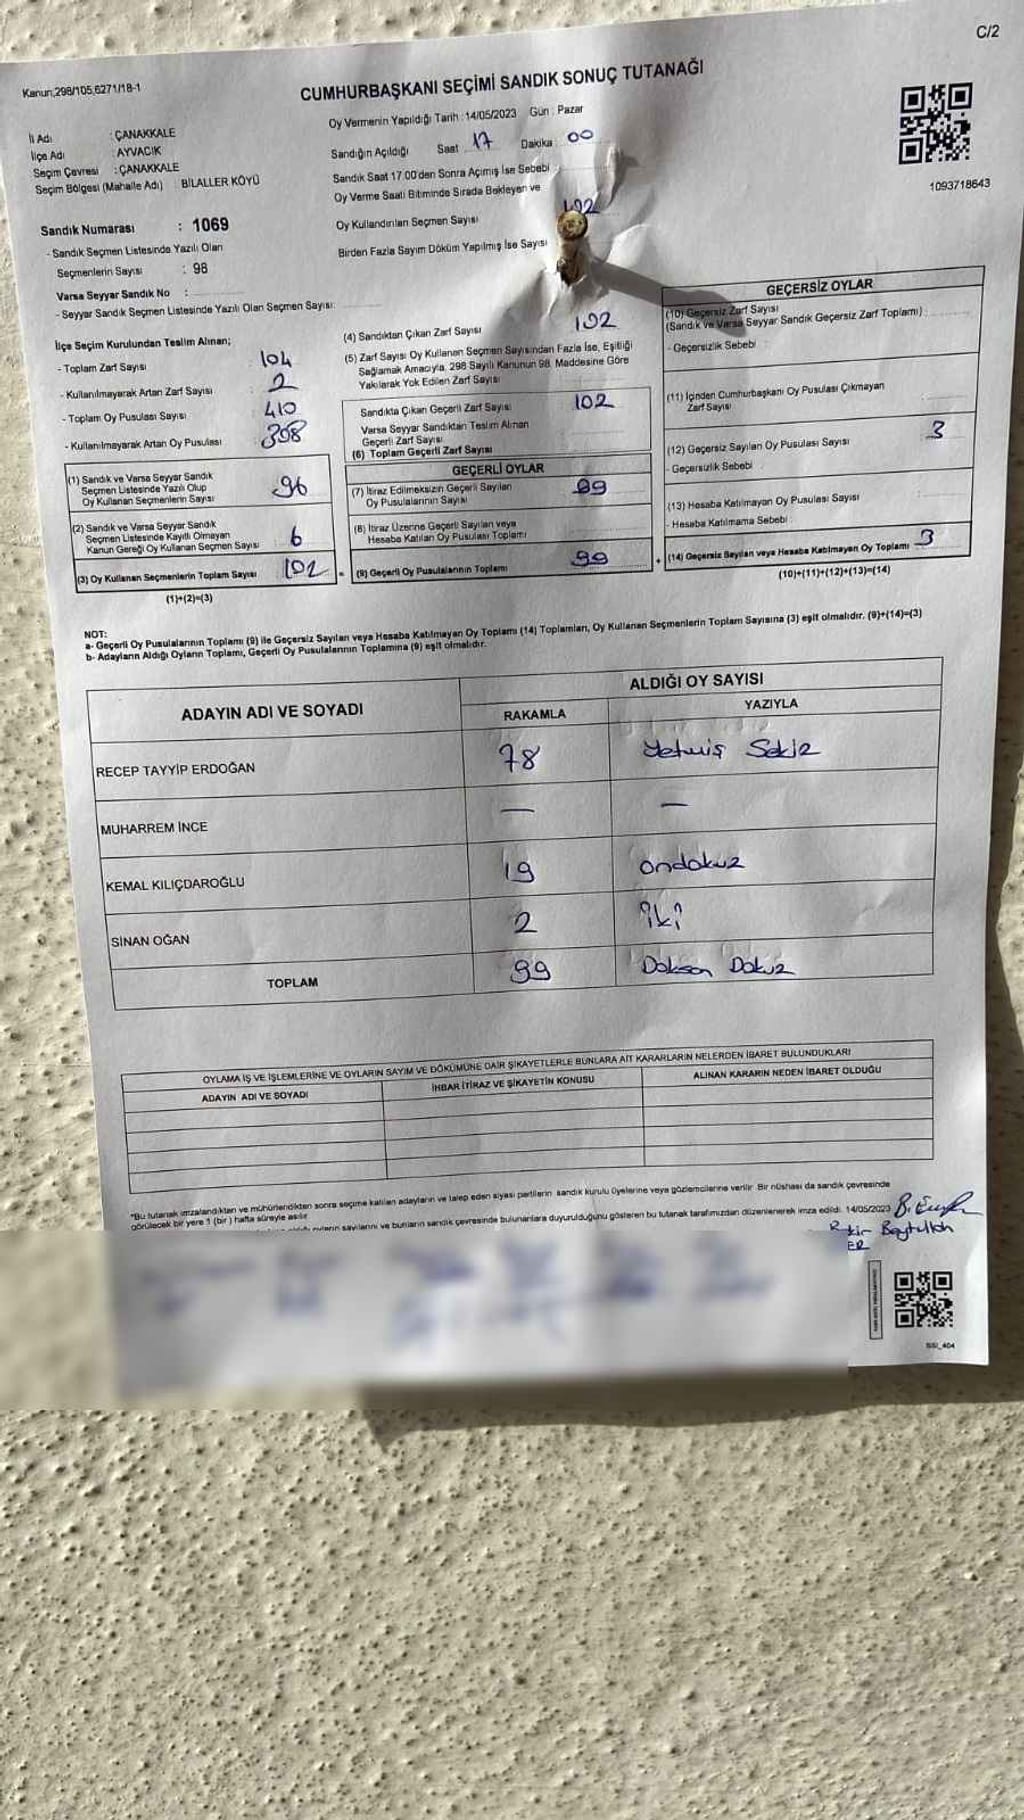 C/2
Kanun;298/105,6271/18-1
CUMHURBAŞKANI SEÇİMİ SANDIK SONUÇ TUTANAĞI
İl Adı : ÇANAKKALE
İlçe Adı : AYVACIK
Seçim Çevresi : ÇANAKKALE
Seçim Bölgesi (Mahalle Adı) : BİLALLER KÖYÜ
Oy Vermenin Yapıldığı Tarih :14/05/2023 Gün : Pazar
Sandığın Açıldığı Saat 17 Dakika 00
Sandık Saat 17.00'den Sonra Açımış İse Sebebi
Oy Verme Saati Bitiminde Sırada Bekleyen ve
Oy Kullandırılan Seçmen Sayısı 102
Birden Fazla Sayım Döküm Yapılmış İse Sayısı
1093718643
Sandık Numarası : 1069
- Sandık Seçmen Listesinde Yazılı Olan
Seçmenlerin Sayısı : 98
Varsa Seyyar Sandık No :
- Seyyar Sandık Seçmen Listesinde Yazılı Olan Seçmen Sayısı:
İlçe Seçim Kurulundan Teslim Alınan;
- Toplam Zarf Sayısı : 104
- Kullanılmayarak Artan Zarf Sayısı : 2
- Toplam Oy Pusulası Sayısı : 410
- Kullanılmayarak Artan Oy Pusulası : 308
(1) Sandık ve Varsa Seyyar Sandık
Seçmen Listesinde Yazılı Olup
Oy Kullanan Seçmenlerin Sayısı 96
(2) Sandık ve Varsa Seyyar Sandık
Seçmen Listesinde Kayıtlı Olmayan
Kanun Gereği Oy Kullanan Seçmen Sayısı 6
(3) Oy Kullanan Seçmenlerin Toplam Sayısı 102
(1)+(2)=(3)
(4) Sandıktan Çıkan Zarf Sayısı 102
(5) Zarf Sayısı Oy Kullanan Seçmen Sayısından Fazla İse, Eşitliği
Sağlamak Amacıyla, 298 Sayılı Kanunun 98. Maddesine Göre
Yakılarak Yok Edilen Zarf Sayısı
Sandıkta Çıkan Geçerli Zarf Sayısı 102
Varsa Seyyar Sandıktan Teslim Alınan
Geçerli Zarf Sayısı
(6) Toplam Geçerli Zarf Sayısı
GEÇERLİ OYLAR
(7) İtiraz Edilmeksizin Geçerli Sayılan
Oy Pusulalarının Sayısı 99
(8) İtiraz Üzerine Geçerli Sayılan veya
Hesaba Katılan Oy Pusulası Toplamı
= (9) Geçerli Oy Pusulalarının Toplamı 99
GEÇERSİZ OYLAR
(10) Geçersiz Zarf Sayısı
(Sandık ve Varsa Seyyar Sandık Geçersiz Zarf Toplamı) :
- Geçersizlik Sebebi :
(11) İçinden Cumhurbaşkanı Oy Pusulası Çıkmayan
Zarf Sayısı
(12) Geçersiz Sayılan Oy Pusulası Sayısı 3
- Geçersizlik Sebebi :
(13) Hesaba Katılmayan Oy Pusulası Sayısı
- Hesaba Katılmama Sebebi :
+ (14) Geçersiz Sayılan veya Hesaba Katılmayan Oy Toplamı 3
(10)+(11)+(12)+(13)=(14)
NOT:
a- Geçerli Oy Pusulalarının Toplamı (9) ile Geçersiz Sayılan veya Hesaba Katılmayan Oy Toplamı (14) Toplamları, Oy Kullanan Seçmenlerin Toplam Sayısına (3) eşit olmalıdır. (9)+(14)=(3)
b- Adayların Aldığı Oyların Toplamı, Geçerli Oy Pusulalarının Toplamına (9) eşit olmalıdır.
ADAYIN ADI VE SOYADI ALDIĞI OY SAYISI
RAKAMLA YAZIYLA
RECEP TAYYİP ERDOĞAN 78 Yetmiş Sekiz
MUHARREM İNCE — —
KEMAL KILIÇDAROĞLU 19 ondokuz
SİNAN OĞAN 2 iki
TOPLAM 99 Doksan Dokuz
OYLAMA İŞ VE İŞLEMLERİNE VE OYLARIN SAYIM VE DÖKÜMÜNE DAİR ŞİKAYETLERLE BUNLARA AİT KARARLARIN NELERDEN İBARET BULUNDUKLARI
ADAYIN ADI VE SOYADI İHBAR İTİRAZ VE ŞİKAYETİN KONUSU ALINAN KARARIN NEDEN İBARET OLDUĞU
*Bu tutanak imzalandıktan ve mühürlendikten sonra seçime katılan adayların ve talep eden siyasi partilerin sandık kurulu üyelerine veya gözlemcilerine verilir. Bir nüshası da sandık çevresinde
görülecek bir yere 1 (bir) hafta süreyle asılır.
oyların sayılarını ve bunların sandık çevresinde bulunanlara duyurulduğunu gösteren bu tutanak tarafımızdan düzenlenerek imza edildi. 14/05/2023
Beytullah
ER
SSI_404